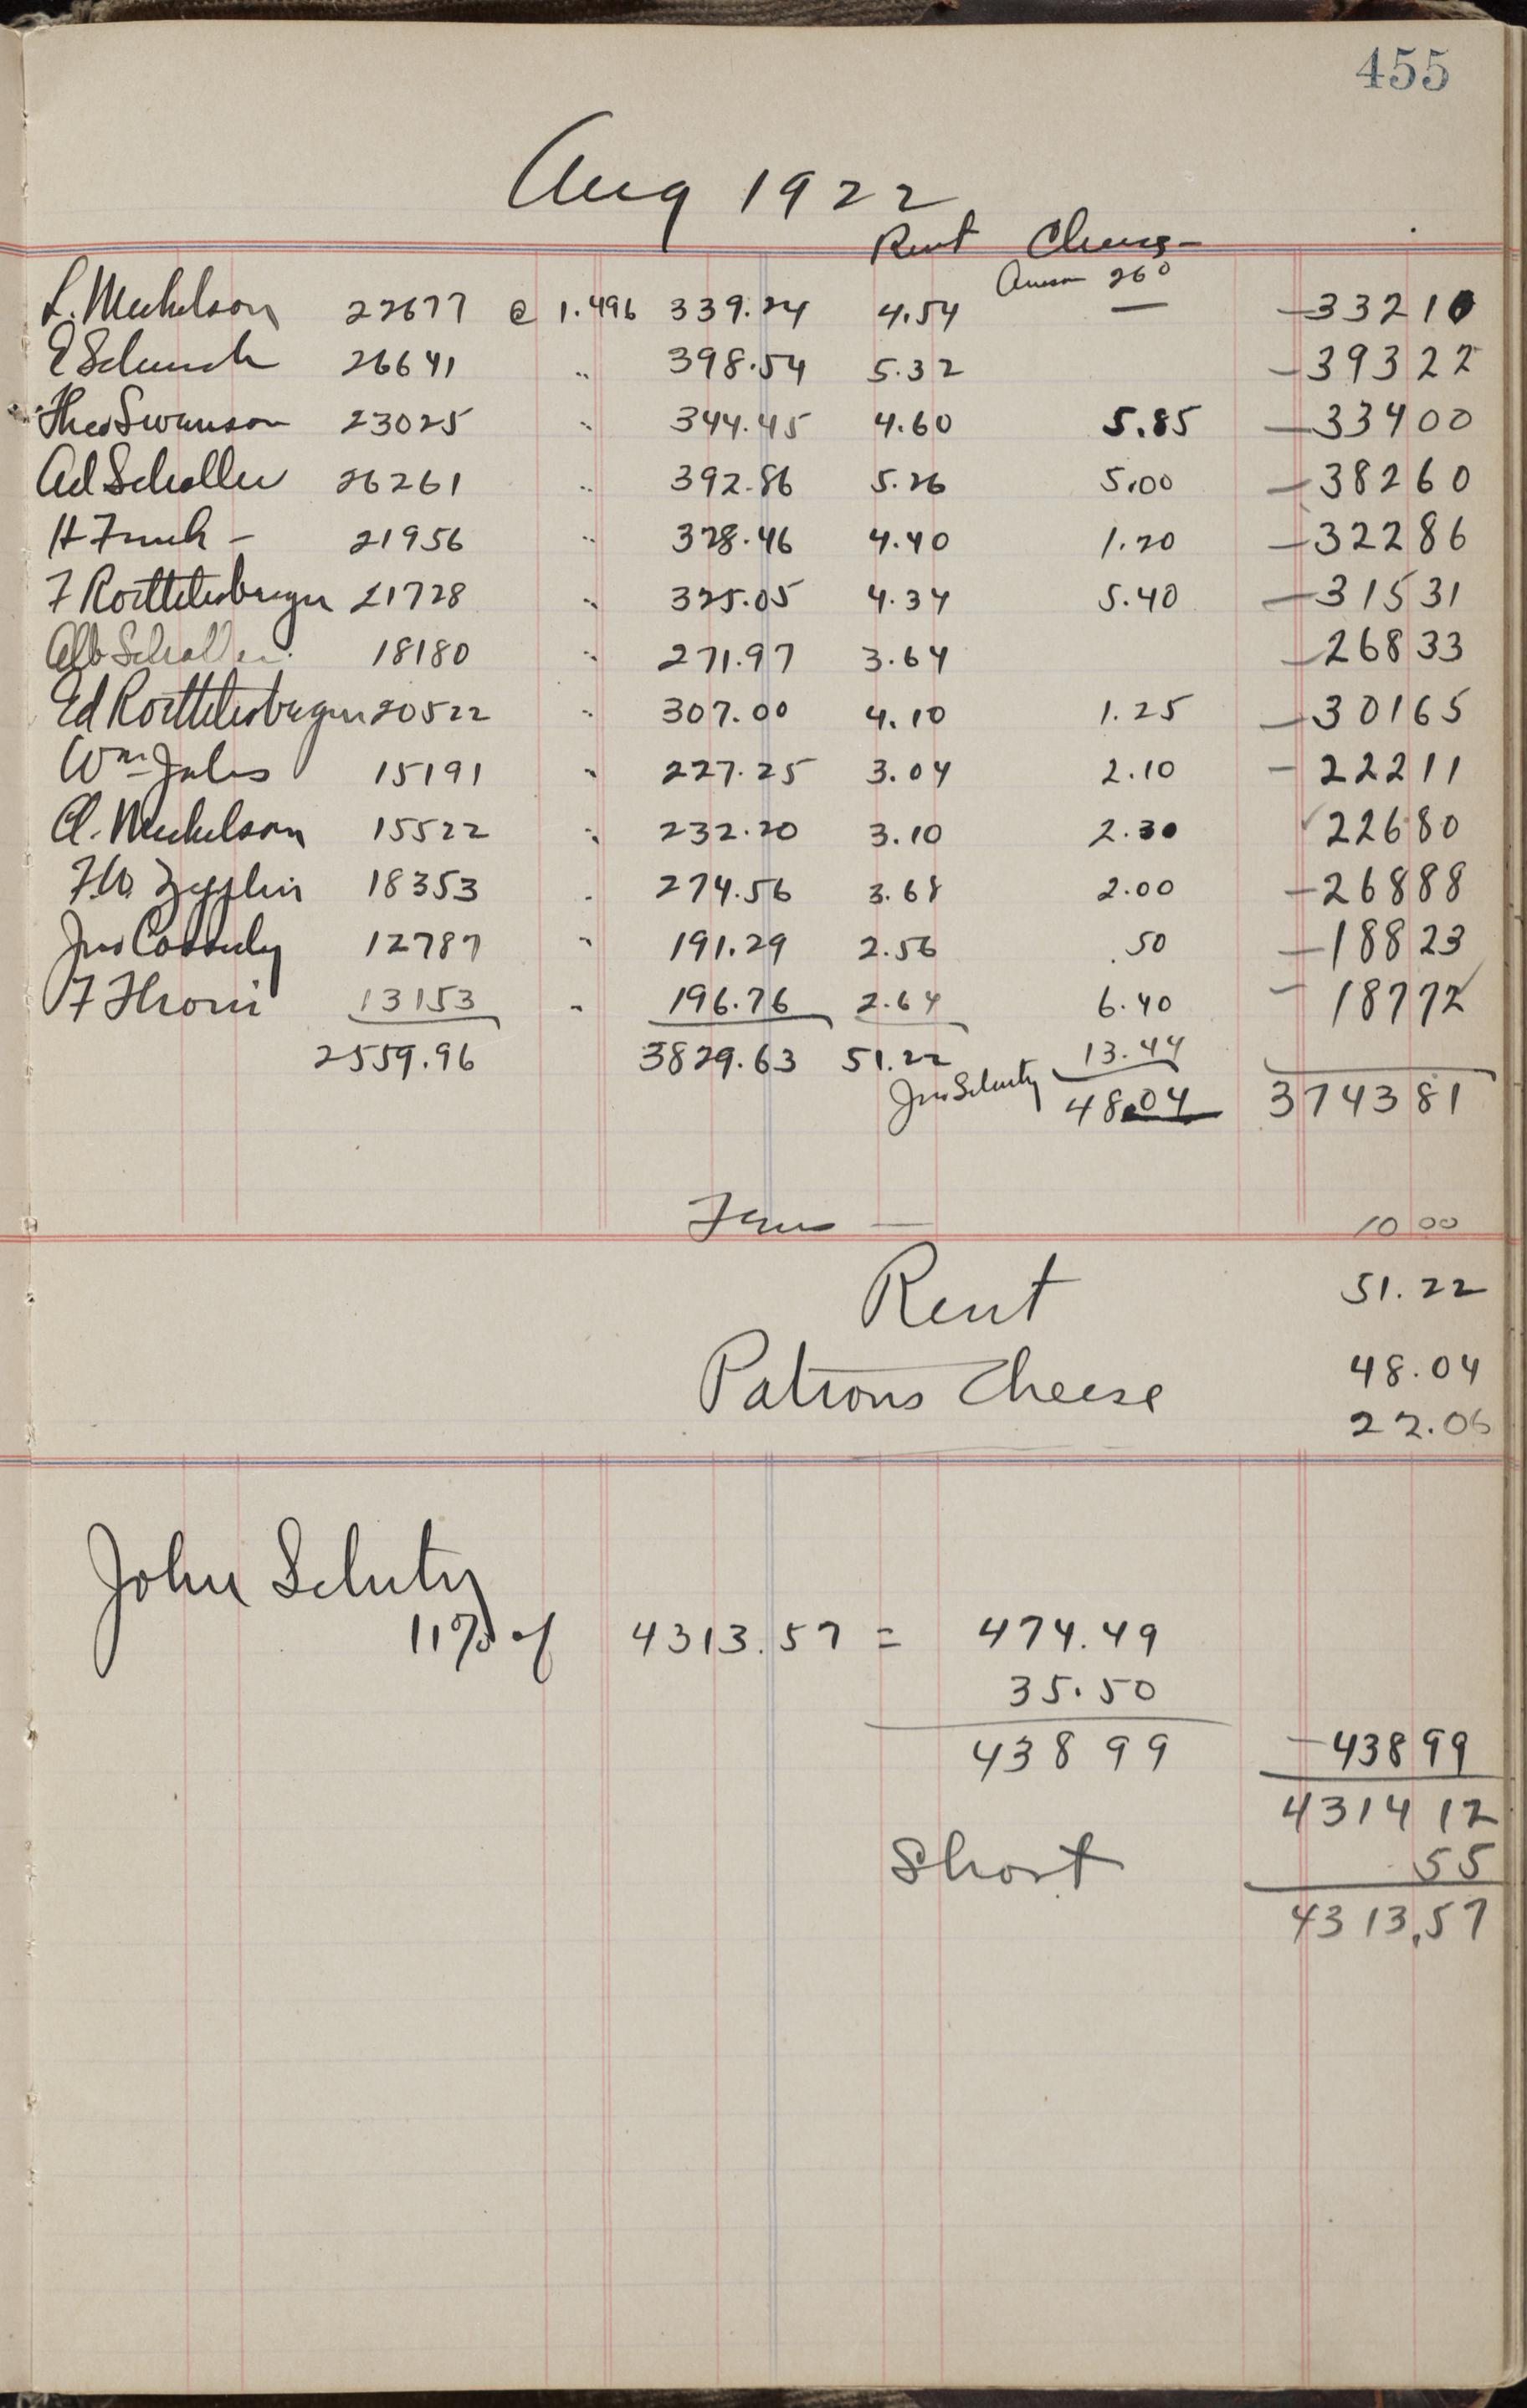 455
Aug 1922
Rent Cheese
260
L. Mickelson 22677 @ 1.496 339.24 4.54 — —33210
E Schunk 26641 " 398.54 5.32 —39322
Theo Swanson 23025 " 344.45 4.60 5.85 —33400
Ad Scholler 26261 " 392.86 5.26 5.00 —38260
H Frunk — 21956 " 328.46 4.40 1.20 —32286
F Roethlisberger 21728 " 325.05 4.34 5.40 —31531
Alb Scholler 18180 " 271.97 3.64 —26833
Ed Roethlisberger 20522 " 307.00 4.10 1.25 —30165
Wm Jules 15191 " 227.25 3.04 2.10 —22211
A. Mickelson 15522 " 232.20 3.10 2.30 22680
F.W. Zepplin 18353 " 274.56 3.68 2.00 —26888
Jno Cassidy 12787 " 191.29 2.56 .50 —18823
F Thoni 13153 " 196.76 2.64 6.40 —18772
2559.96 3829.63 51.22 13.44
Jno Schutz 48.04 374381
— 10 00
Rent 51.22
Patrons Cheese 48.04
22.06
John Schutz
11% of 4313.57 = 474.49
35.50
438 99 —438 99
4314 12
Short 55
4313.57